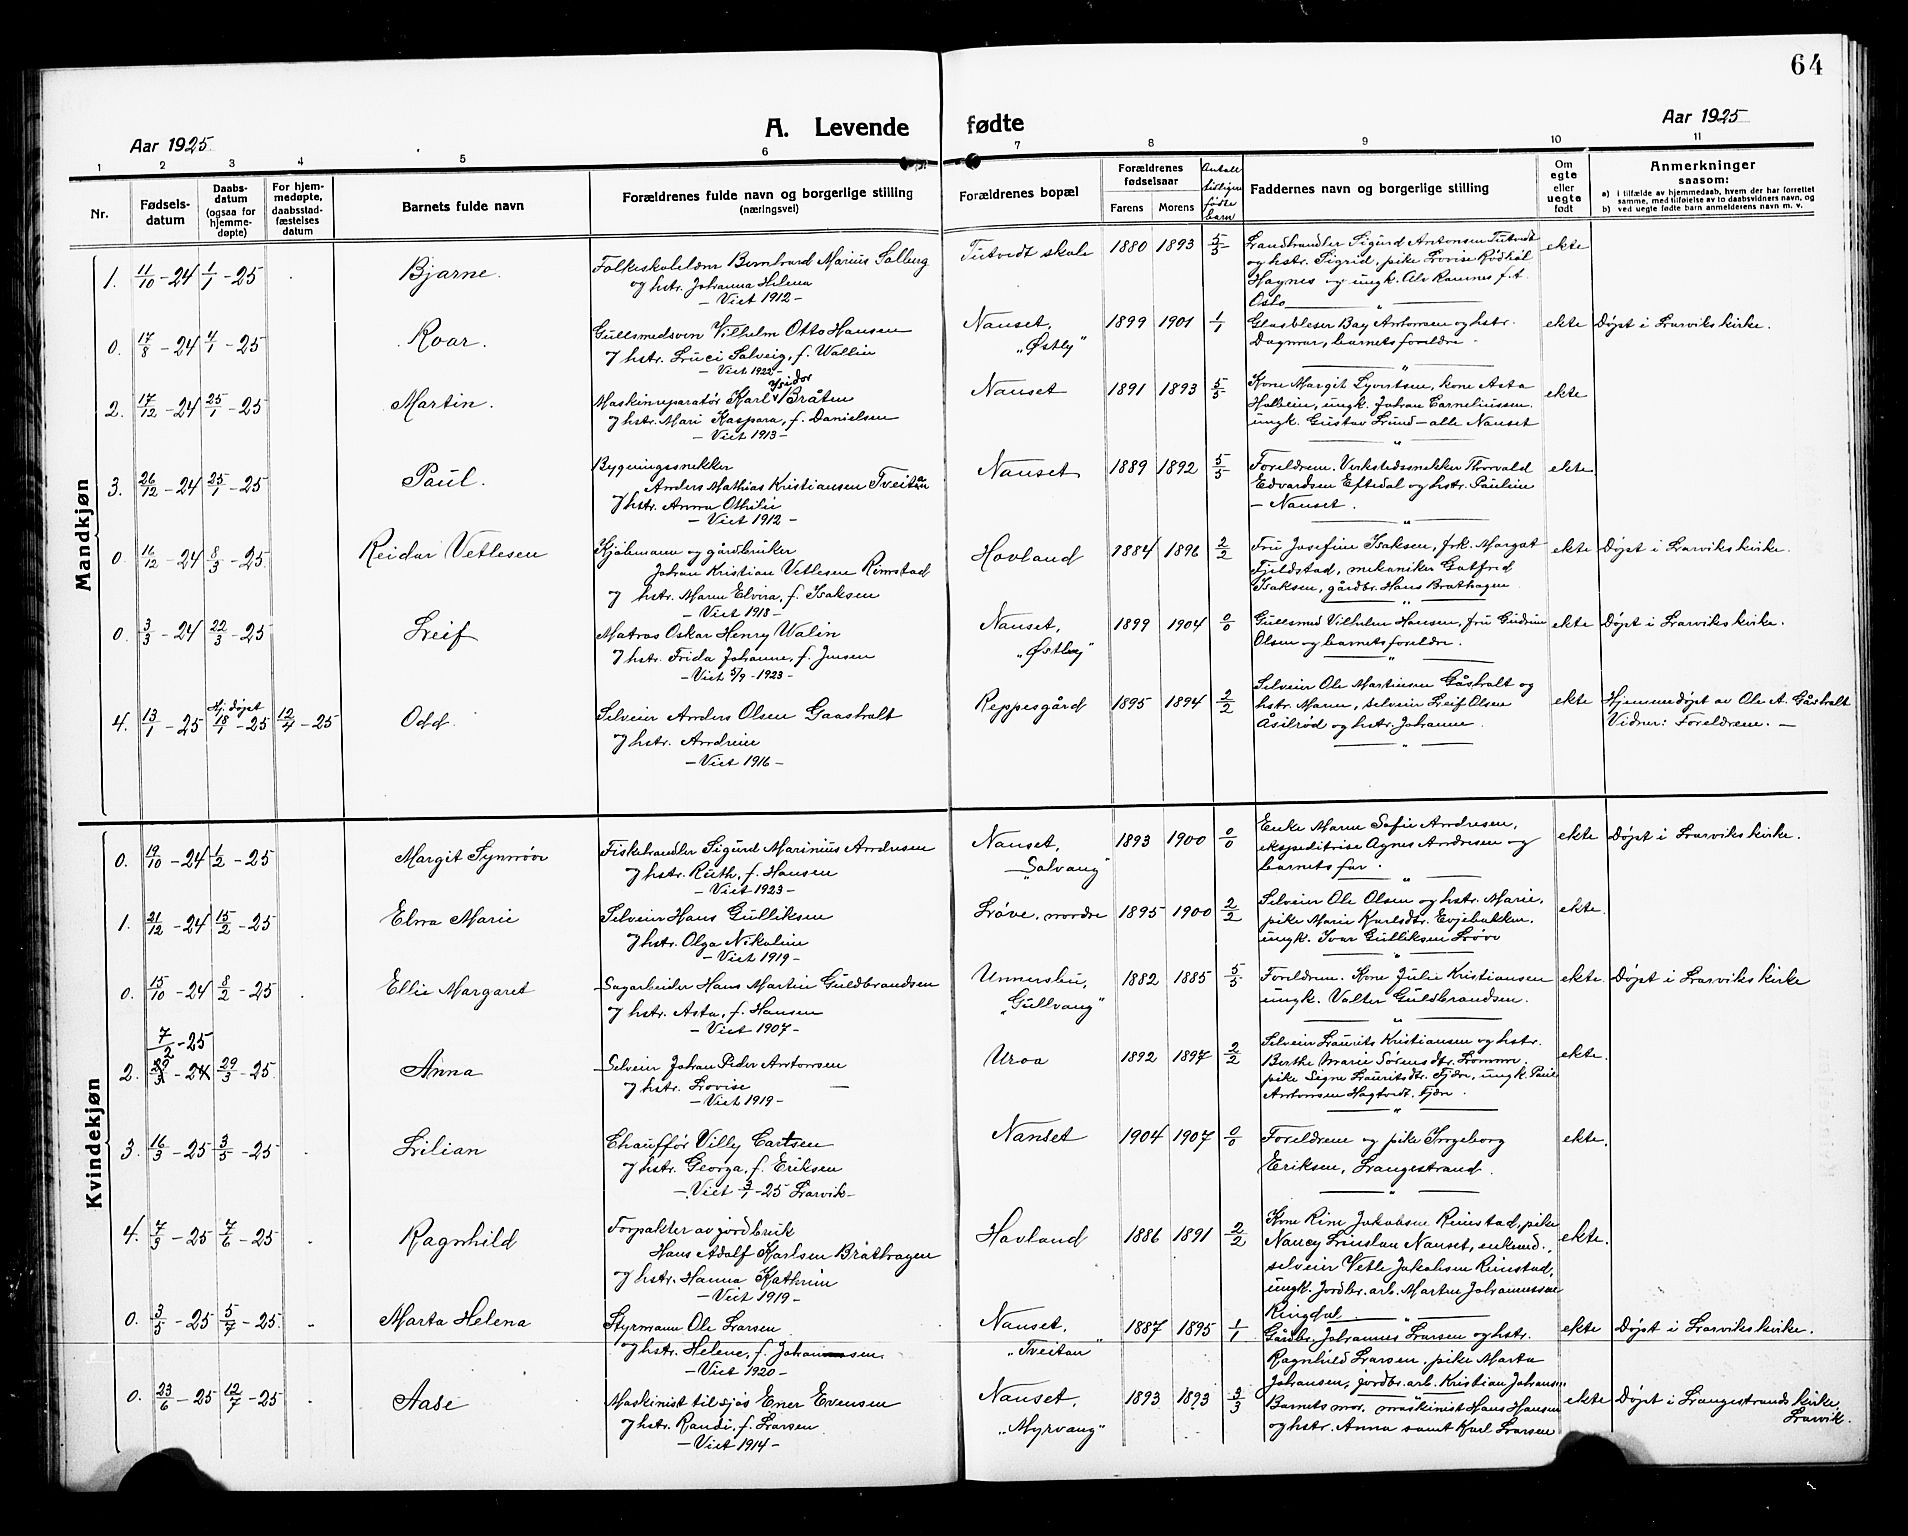 64
Aar 1925
A. Levende fødte
Aar 1925
1 2 3 4 5 6 7 8 9 10 11
Nr.
Fødsels-
datum
Daabs-
datum
(ogsaa for
hjemme-
døpte)
For hjem-
medøpte,
daabsstad-
fæstelses
datum
Barnets fulde navn
Forældrenes fulde navn og borgerlige stilling
(næringsvei)
Forældrenes bopæl
Forældrenes
fødselsaar
Farens Morens
Antall
tidligere
fødte
barn
Faddernes navn og borgerlige stilling
Om
egte
eller
uegte
født
Anmerkninger
saasom:
a) i tilfælde av hjemmedaab, hvem der har forrettet
samme, med tilføielse av to daabsvidners navn, og
b) ved uegte fødte barn anmelderens navn m. v.
Mandkjøn
1. 11/10 - 24 1/1 - 25 Bjarne.
Folkeskolelærer Bernhard Marius Solberg
og hstr. Johanna Helena
- Viet 1912 -
Tutvedt skole 1880 1893 5/5
Landhandler Sigurd Antonsen Tutvedt
og hstr. Sigrid, pike Lovise Rødbøl
Haynes og ungk. Alv Ramnes f. t.
Oslo
ekte
0. 17/8 - 24 4/1 - 25 Roar.
Gullsmedsven Vilhelm Otto Hansen
og hstr. Luci Solveig, f. Wallin
- Viet 1922 -
Nanset,
"Østly"
1899 1901 1/1
Glasbleser Bay Antonsen og hstr.
Dagmar, barnets foreldre.
ekte Døpt i Larviks kirke.
2. 17/12 - 24 25/1 - 25 Martin.
Maskinreparatør Karl Isidor Bråten
og hstr. Mari Kaspara, f. Danielsen
- Viet 1913 -
Nanset 1891 1893 5/5
Kone Margit Syvertsen, kone Asta
Holbein, ungk. Johan Corneliussen
ungk. Gustav Lund - alle Nanset
ekte
3. 26/12 - 24 25/1 - 25 Paul.
Bygningssnekker
Anders Mathias Kristiansen Tveitan
og hstr. Anna Othilie
- Viet 1912 -
Nanset 1889 1892 5/5
Foreldrene. Verkstedssnekker Thorvald
Edvardsen Eftedal og hstr. Pauline
- Nanset.
ekte
0. 16/12 - 24 8/3 - 25. Reidar Vetlesen
Kjølemann og gårdbruker
Johan Kristian Vetlesen Rimstad
og hstr. Maren Elvira, f. Isaksen
- Viet 1918 -
Hovland 1884 1896 2/2
Fru Josefine Isaksen, frk. Margot
Fjeldstad, mekaniker Gotfrid
Isaksen, gårdbr. Hans Brathagen
ekte Døpt i Larviks kirke.
0. 3/3 - 24 22/3 - 25 Leif
Matros Oskar Henry Walin
og hstr. Frida Johanne, f. Jensen
- Viet 5/9 - 1923 -
Nanset,
"Østby"
1899 1904 0/0
Gullsmed Vilhelm Hansen, fru Gudrun
Olsen og barnets foreldre.
ekte Døpt i Larviks kirke.
4. 13/1 - 25 Hj. døpt 18/1 - 25 12/4 - 25 Odd.
Selveier Anders Olsen Gaasholt
og hstr. Andrine
- Viet 1916 -
Reppesgård 1895 1894 2/2
Selveier Ole Martinsen Gåsholt og
hstr. Maren, selveier Leif Olsen
Åsilrød og hstr. Johanne.
ekte
Hjemmedøpt av Ole A. Gåsholt
Vidner: Foreldrene. -
Kvindekjøn
0. 19/10 - 24 1/2 - 25 Margit Synnøve
Fiskehandler Sigurd Marinius Andresen
og hstr. Ruth, f. Hansen
- Viet 1923 -
Nanset,
"Solvang"
1893 1900 0/0
Enke Maren Sofie Andresen,
ekspeditrise Agnes Andresen og
barnets far.
ekte Døpt i Larviks kirke.
1. 21/12 - 24 15/2 - 25 Elna Marie
Selveier Hans Gulliksen
og hstr. Olga Nikoline
- Viet 1919 -
Løve, nordre 1895 1900 2/2
Selveier Ole Olsen og hstr. Marie,
pike Marie Karlsdtr. Evjebakken,
ungk. Ivar Gulliksen Løve
ekte.
0. 15/10 - 24 8/2 - 25 Ellie Margaret
Sagarbeider Hans Martin Guldbrandsen
og hstr. Asta, f. Hansen
- Viet 1907 -
Unnersbu,
"Gullvang"
1882 1885 5/5
Foreldrene. Kone Julie Kristiansen
ungk. Valter Guldbrandsen.
ekte. Døpt i Larviks kirke
7/2 - 25
2. 29/3 - 24 29/3 - 25. Anna
Selveier Johan Peder Antonsen
og hstr. Lovise
- Viet 1919 -
Uroa 1892 1897 2/2
Selveier Laurits Kristiansen og hstr.
Berthe Marie Sørensdtr. Lomme.
pike Signe Lauritsdtr. Fjære, ungk. Paul
Antonsen Hagtvedt. Fjære.
ekte.
3. 16/3 - 25 3/5 - 25 Lilian
Chauffør Villy Carlsen
og hstr. Georga, f. Eriksen
- Viet 3/1 - 25 Larvik -
Nanset 1904 1907 0/0
Foreldrene og pike Ingeborg
Eriksen, Langestrand.
ekte.
4. 7/3 - 25 7/6 - 25 Ragnhild
Forpakter av jordbruk
Hans Adolf Karlsen Bråthagen
og hstr. Hanna Kathrine
- Viet 1919 -
Hovland 1886 1891 2/2
Kone Rine Jakobsen Rimstad, pike
Nancy Nanset, enkemd.,
selveier Vetle Jakobsen Rimstad,
ungk. Jordbr. arb. Martin Johannessen
Ringdal.
ekte.
0. 3/5 - 25 5/7 - 25 Marta Helena
Styrmann Ole Larsen
og hstr. Helene, f. Johannsen.
- Viet 1920 -
Nanset.
"Tveitan"
1887 1895 1/1
Gårdbr. Johannes Larsen og hstr.
Ragnhild Larsen. pike Marta
Johansen, Jordbr. arb. Kristian Johansen
ekte Døpt i Larviks kirke.
0. 23/6 - 25 12/7 - 25 Aase
Maskinist tilsjøs Ener Evensen
og hstr. Randi, f. Larsen
- Viet 1914 -
Nanset,
"Myrvang"
1893 1893 3/3
Barnets mor. maskinist Hans Hansen
og hstr. Anna samt Karl Larsen
ekte Døpt i Langestrands kirke,
Larvik.